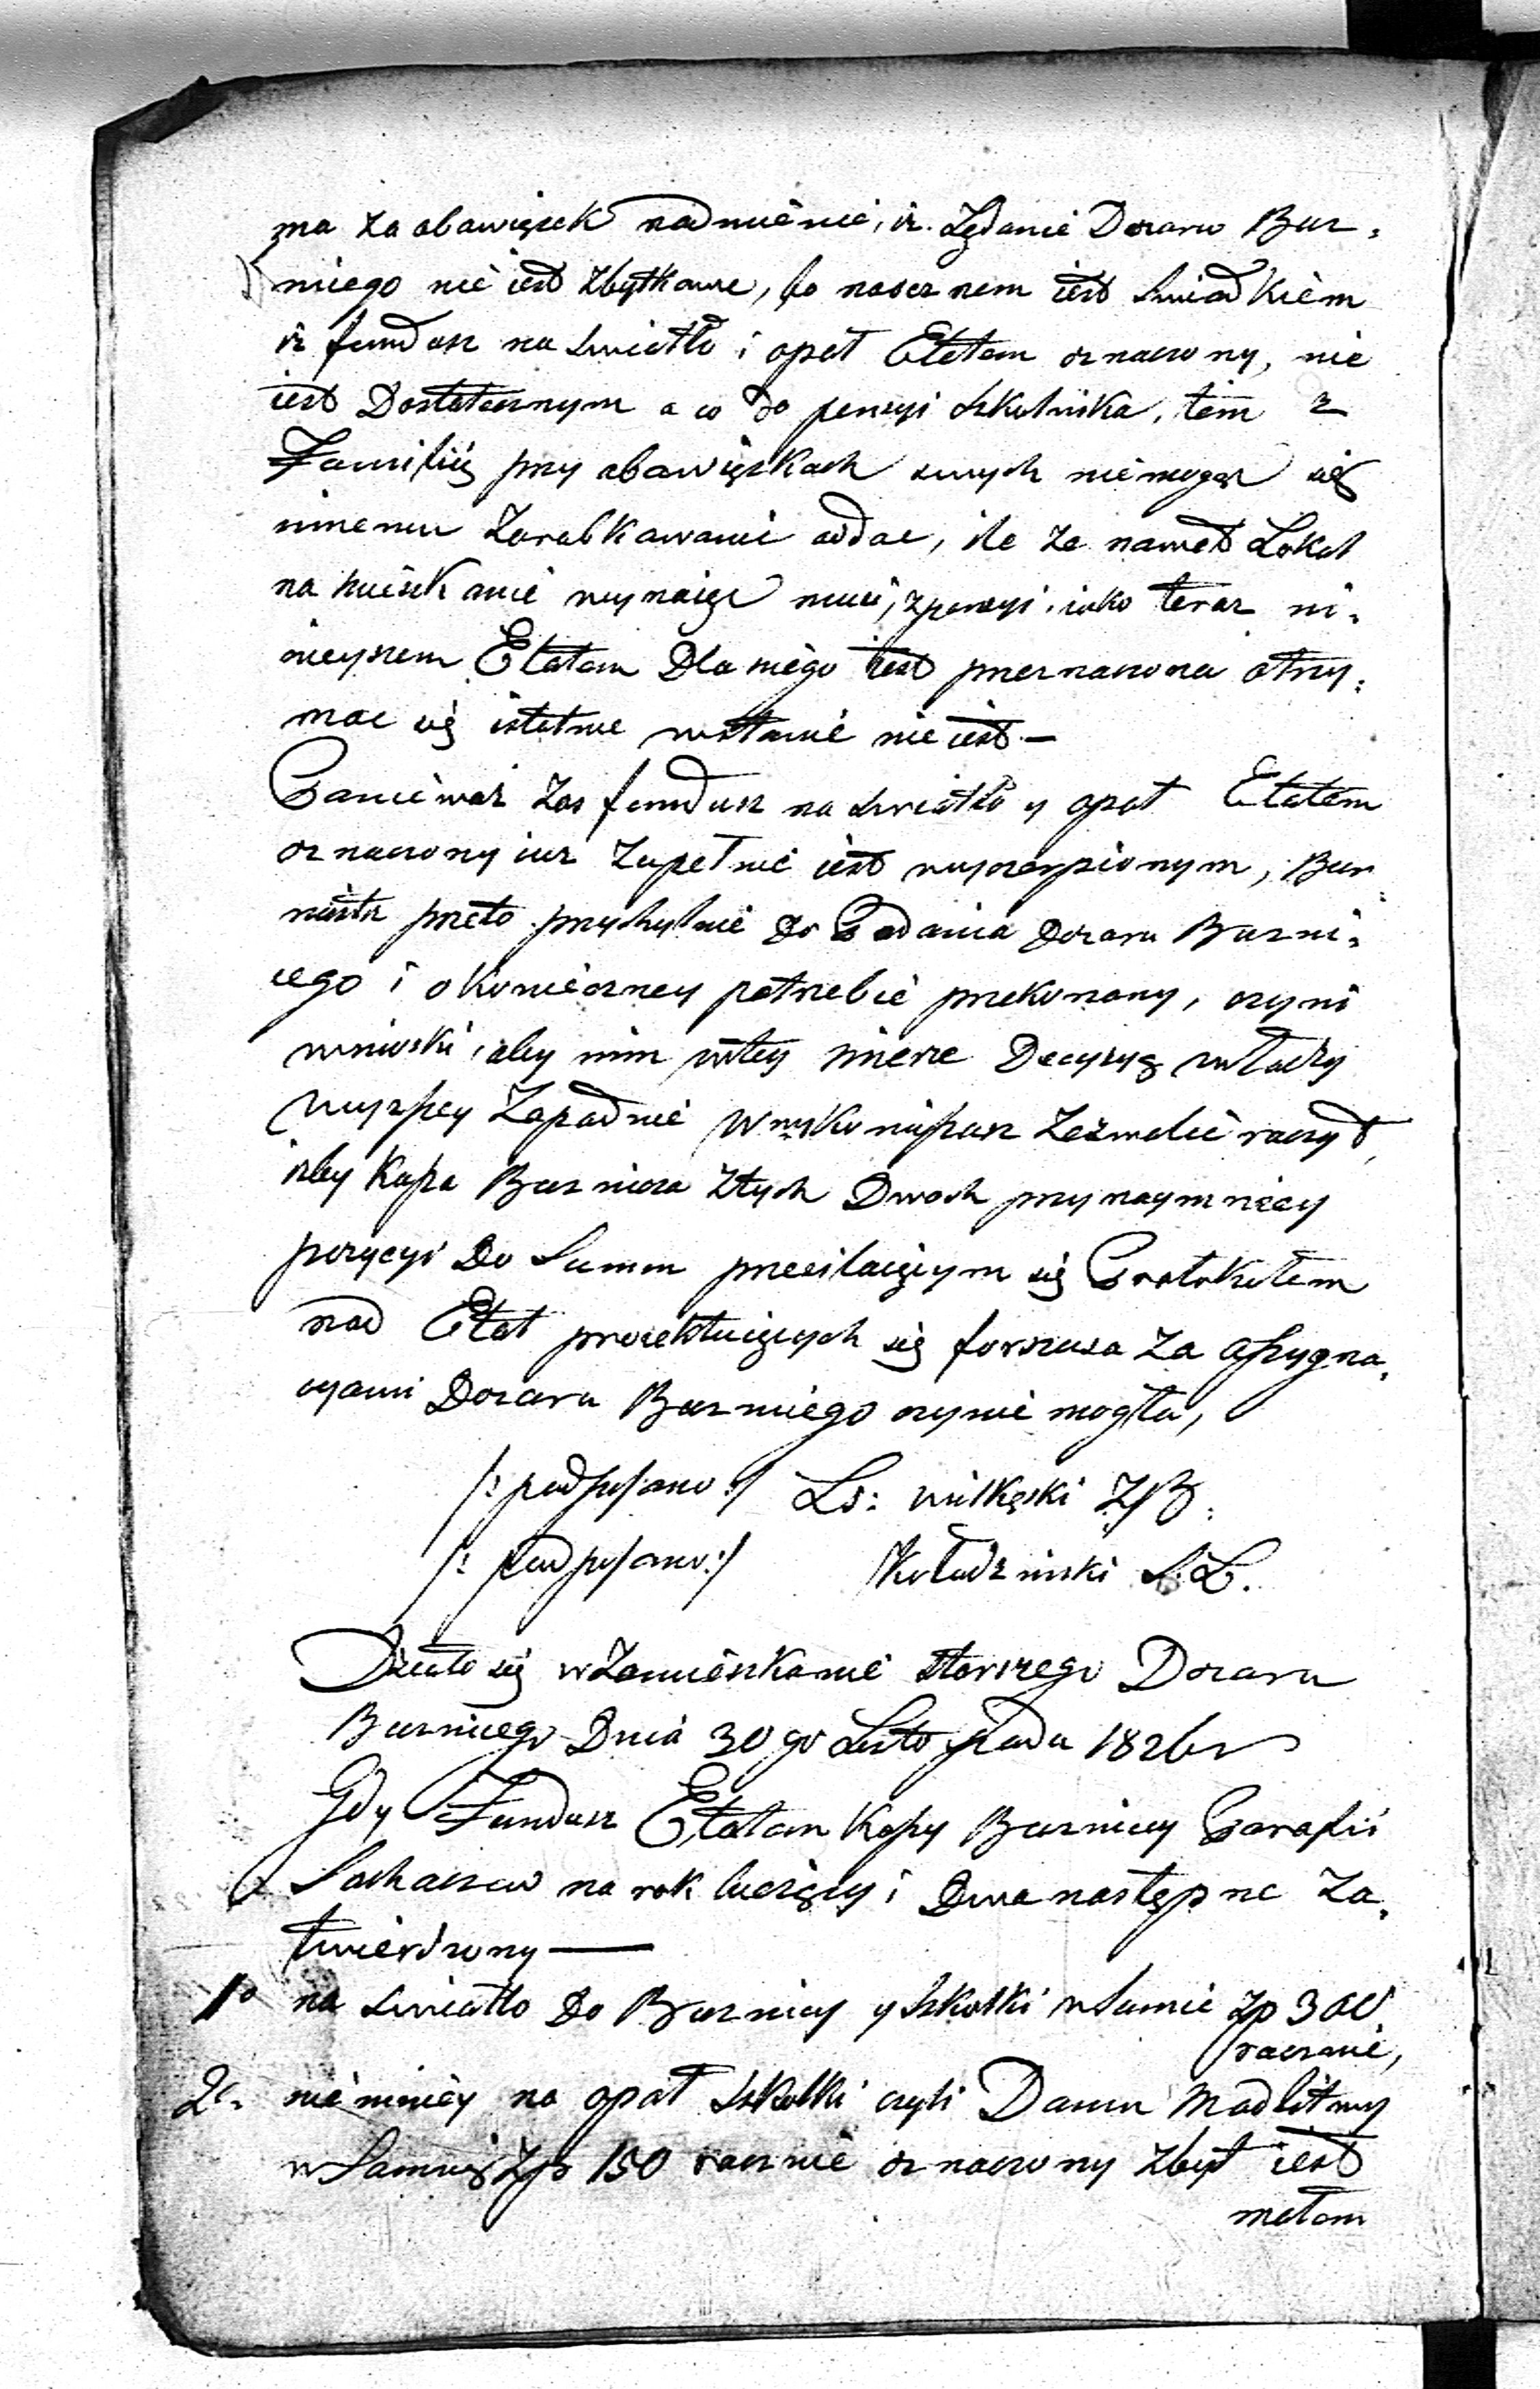 ma za obowięzek nadmienić, iż Żądanie Dozoru Boz„
niego nie iest zbytkowne, bo naocznem iest swiadkiem
iż fundusz na swiatło i opał Etatem oznaczony, nie
iest Dostatecznym a co do pensyi szkolnika, tem z
Familią przy obowiązkach swych niemogąc się
innemu Zarobkowanie oddac, ile ze nawet Lokal
na mieszkanie wynaiąc musi, zpensyi iako teraz ni„
nieyszem Etatem Dla niego iest przeznaczona otrzy„
mac się istotnie wstanie nie iest —
Ponieważ zas fundusz na swiatło y opał Etatem
oznaczony iuz zupełnie iest wyczerpionym, Bur„
mistrz przeto przychylnie do Żądania Dozoru Bożni„
czego i okonieczney potrzebie przekonany, czyni
wnioski, aby nim wtey mierze Decyzyą władzy
wyzszey Zapadnie W. Kommissarz Zezwolić raczył,
izby Kassa Boznicza ztych Dwoch przynaymniey
pozycyi Do Summ przesilaiącym się Protokułem
nad Etat proiektuiących się forszusa za assygna„
cyami Dozoru Bozniczego czynić mogła,
/: podpisano :/ Ls: Wilkęski Z.B.
/: podpisano :/ Kołudzinski S. L.
Działo się w Zamieszkanie starszego Dozoru
Bozniczego Dnia 30go Listopada 1826 r
Gdy Fundusz Etatem Kassy Boznicy Parafii
Sochaczew na rok bieżący i Dwa następne Za„
twierdzony —
1o na swiatło Do Boznicy y szkołki w Sumie Zp 300
rocznie,
2o. nie mniey na opał szkołki czyli Domu Modlitwy
w Sumię Zp 150 rocznie oznaczony zbyt iest
małom